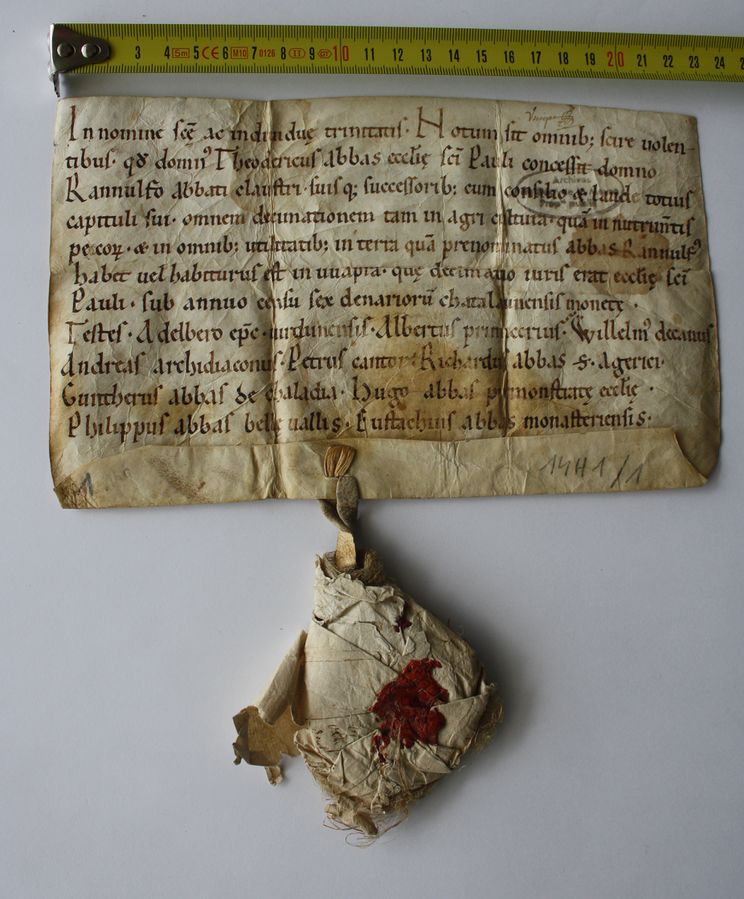 3 4 5m 5 CE 6 M10 7 0126 8 II 9 GT 10 11 12 13 14 15 16 17 18 19 20 21 22 23 24
In nomine scę ac individuę trinitatis · Notum sit omnib; scire volen-
tibus · qđ domn' Theodericus abbas ecclię sci Pauli concessit domno
Rannulfo abbati claustri · suis q; successorib; cum consilio & laude totius
capituli sui · omnem decimationem tam in agri cultura · quā in nutrimtis
pecorꝝ · & in omnib; utilitatib; in terra quā prenominatus abbas Rannulf'
habet vel habiturus est in uuapra · quę decimatio iuris erat ecclię sci
Pauli · sub annuo censu sex denariorū chatalaunensis monetę ·
Testes · Adelbero epc · uirdunensis · Albertus primicerius · Willelm' decanus
Andreas archidiaconus · Petrus cantor · Richardus abbas S · Agerici ·
Guntherus abbas de chaladia · Hugo abbas premonstratę ecclię ·
Philippus abbas belle uallis · Eustachius abbas monasteriensis ·
Archives
1
14H1/1